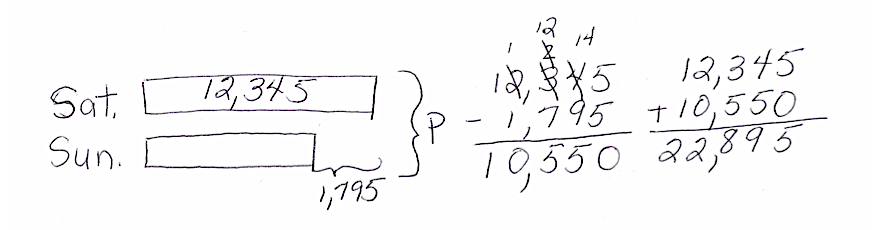 Sat. 12,345
Sun.
1,795
P
12
1 2 14
12,345
- 1,795
10,550
12,345
+ 10,550
22,895